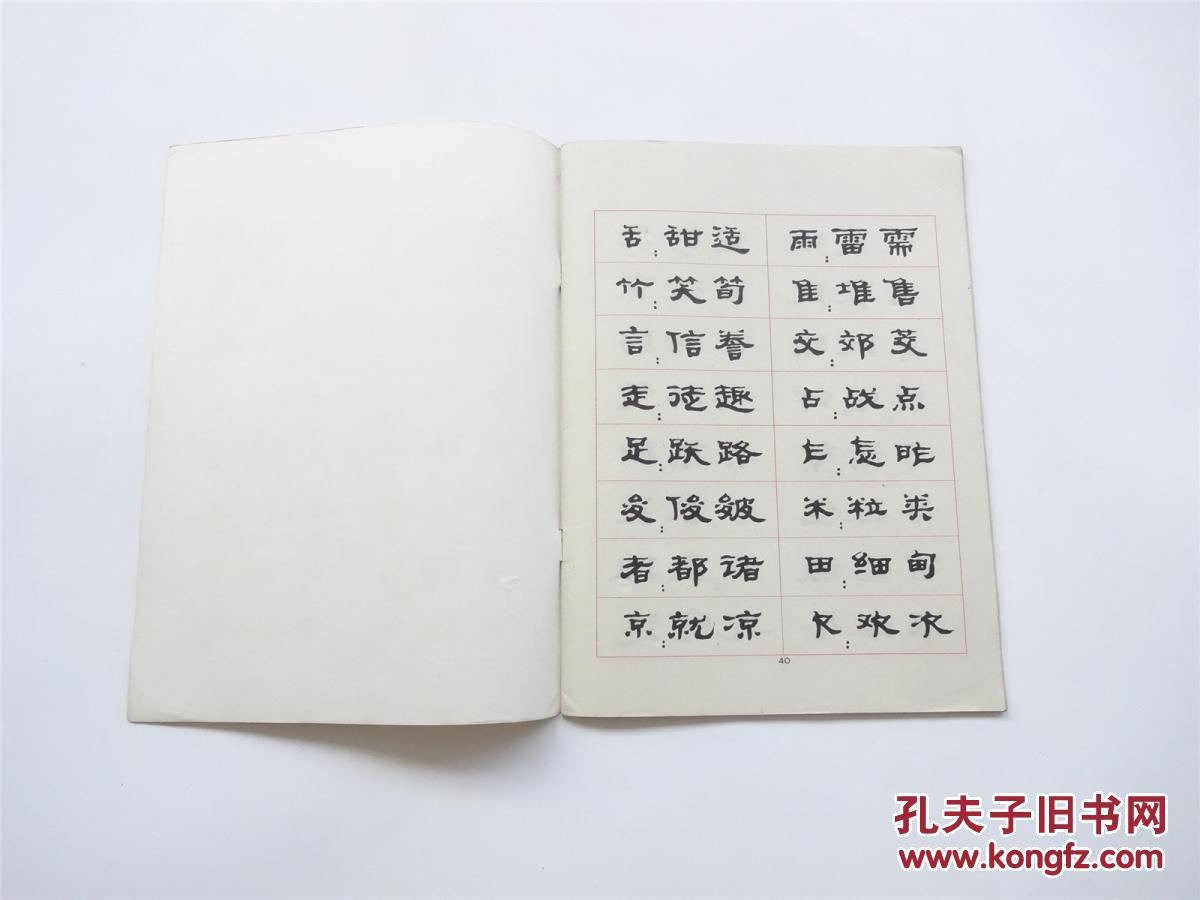 舌:甜适 雨:雷需
竹:笑筍 隹:堆售
言:信誉 交:郊茭
走:徒趣 占:战点
足:跃路 乍:怎昨
夋:俊皴 米:粒类
者:都诸 田:细甸
京:就凉 欠:欢次
40
孔夫子旧书网
www.kongfz.com